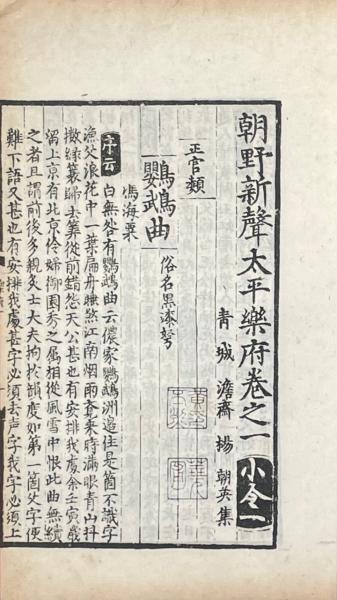 朝野新聲太平樂府卷之一 小令一
青城 澹齋 楊朝英集
正宫類
鸚鵡曲 俗名黑漆弩
馮海粟
序云 白無咎有鸚鵡曲云儂家鸚鵡洲邊住是箇不識字
漁父浪花中一葉扁舟睡煞江南烟雨覺來時滿眼青山抖
擻緑簑歸去筭從前錯怨天公甚也有安排我處余壬寅歳
留上京有北京伶婦御園秀之屬相從風雪中恨此曲無續
之者且謂前後多親炙士大夫拘於韻度如第一箇父字便
難下語又甚也有安排我處甚字必須去声字我字必須上